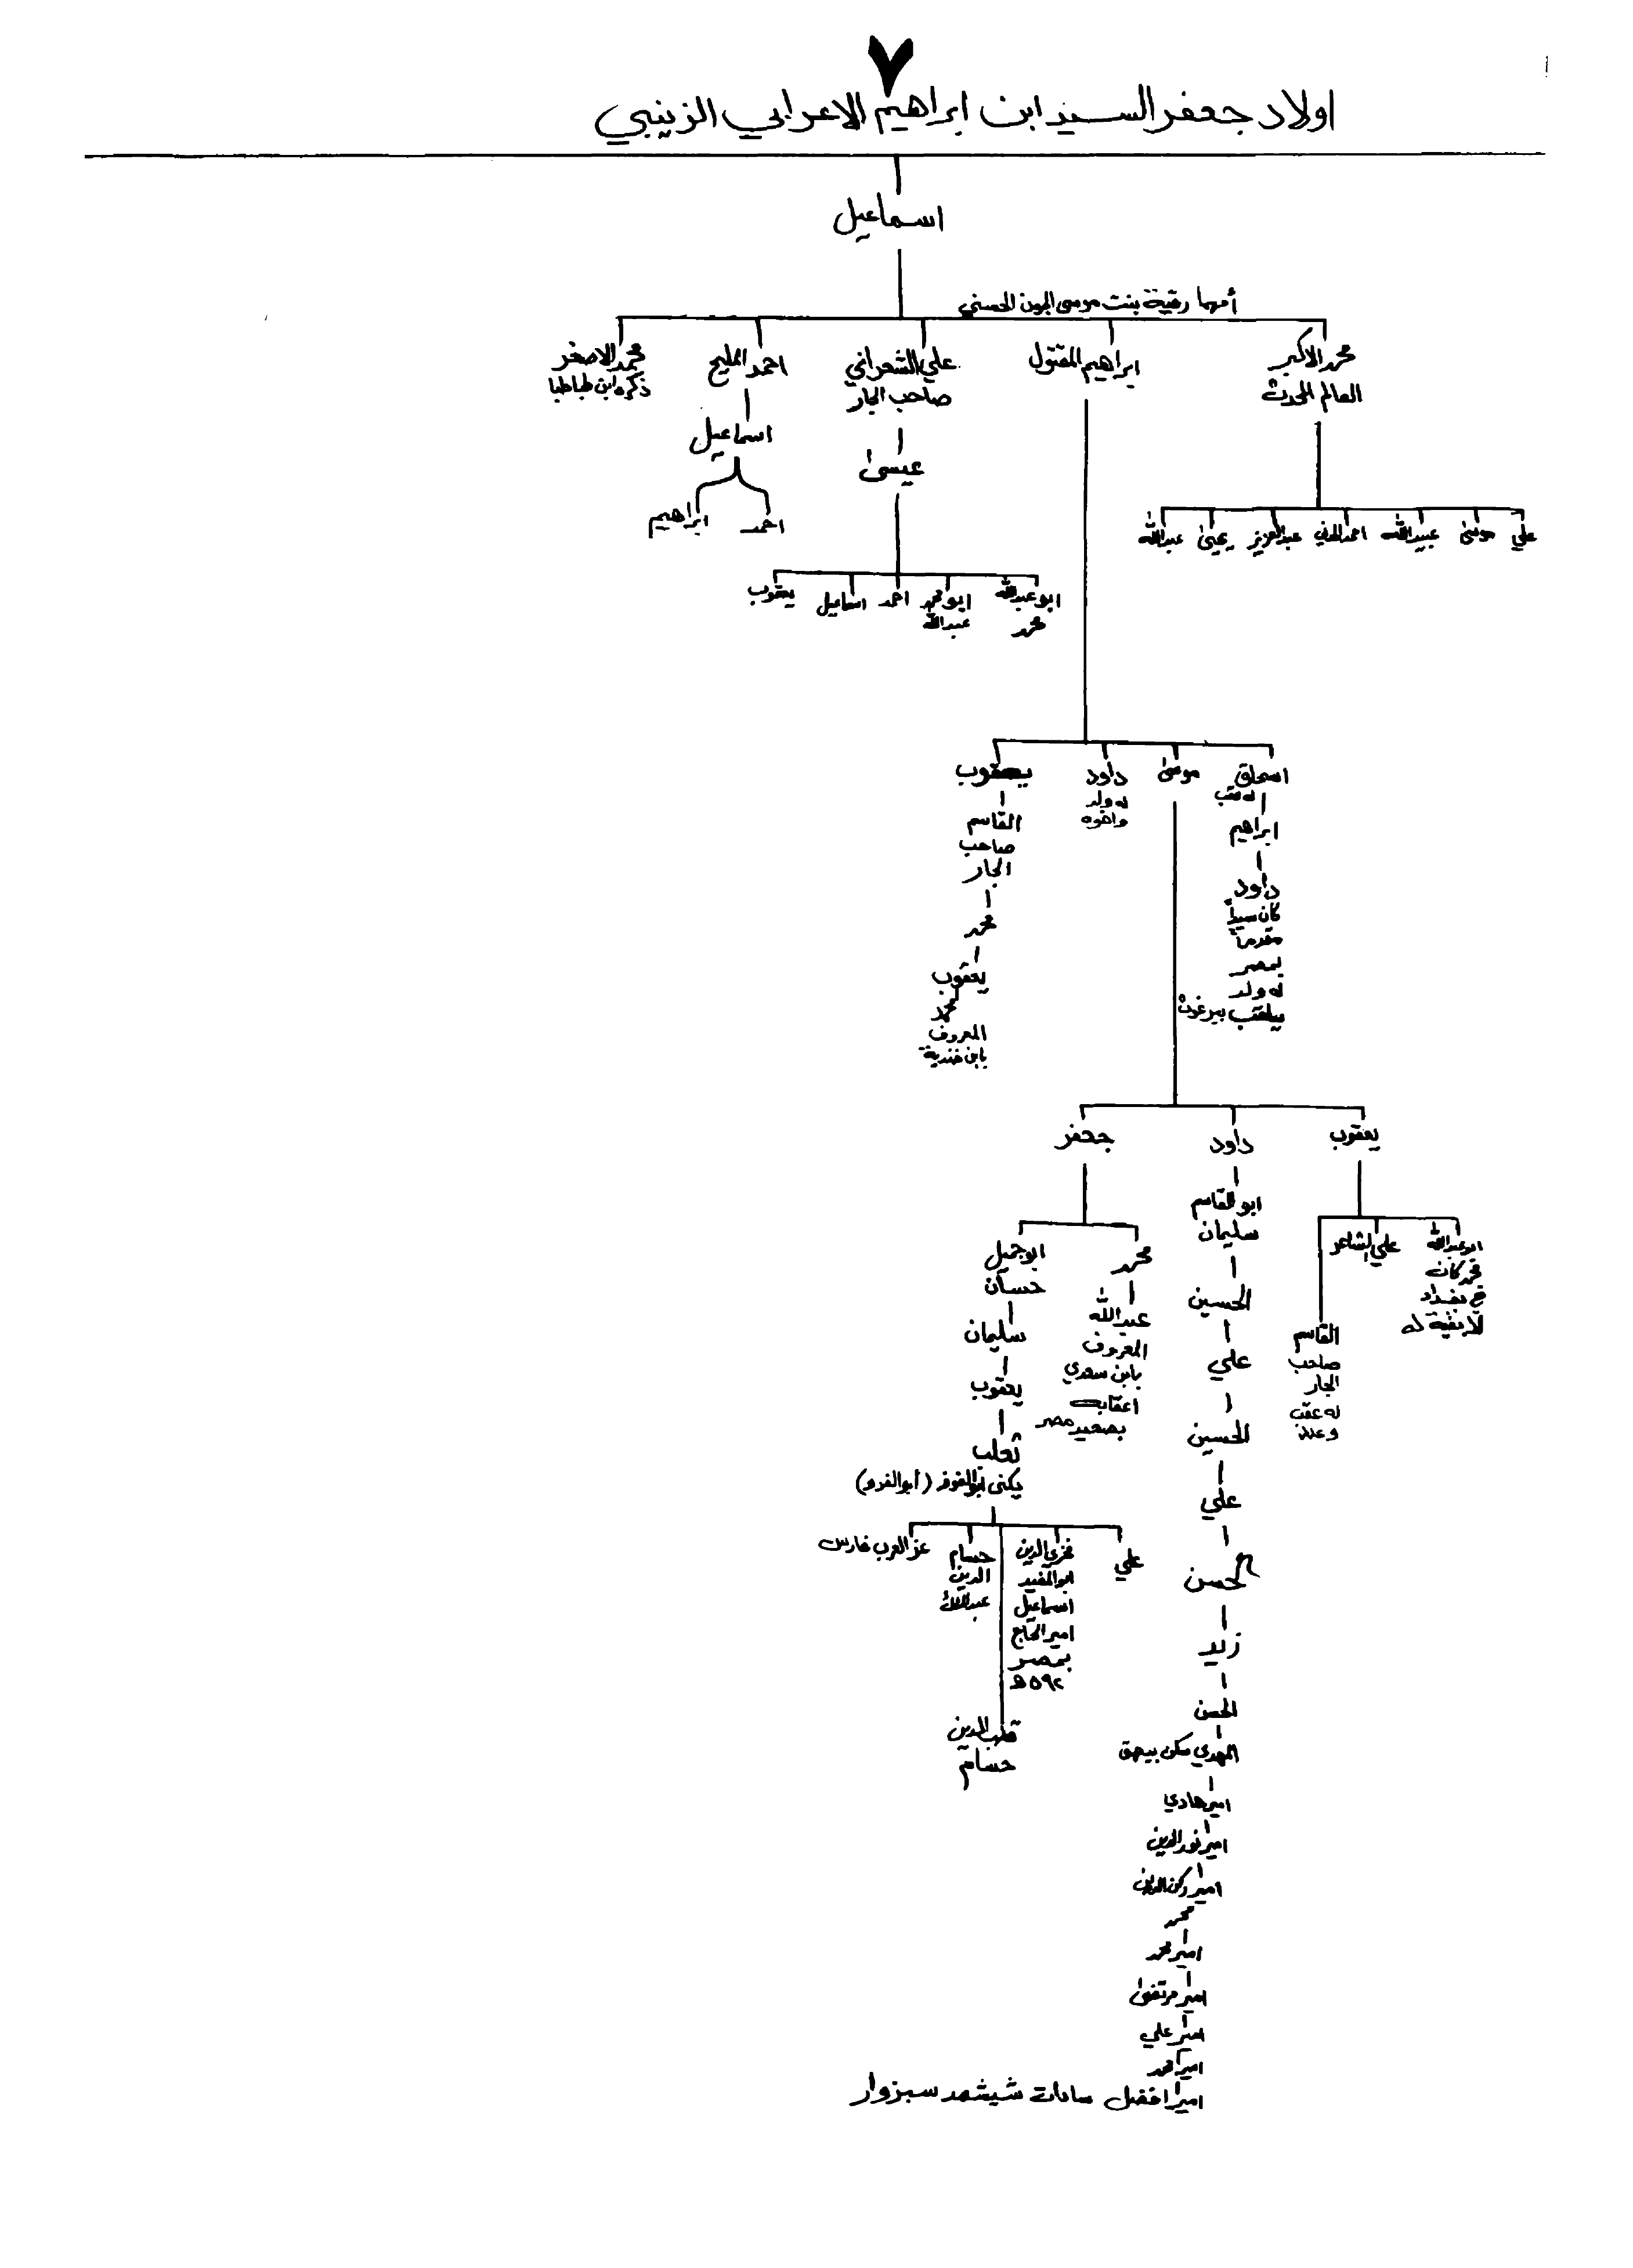 ٧
اولاد جعفر السيد ابن ابراهيم الاعرابي الزينبي
اسماعيل
أمهما رقية بنت موسى الجون الحسني
محمد الاكبر
العالم المحدث
ابراهيم المقتول
علي الشعراني
صاحب الجار
احمد المليح
محمد الاصغر
ذكره ابن طباطبا
اسماعيل
احمد
ابراهيم
عيسى
علي
موسى
عبيد الله
احمد المدني
عبد العزيز
يحيى
عبد الله
ابو عبد الله
محمد
ابو محمد
عبد الله
احمد
اسماعيل
يعقوب
اسحاق
له عقب
ابراهيم
داود
كان سيداً
مقدماً
بمصر
له ولد
يلقب ببرغوث
موسى
داود
له ولد
واخوه
يعقوب
القاسم
صاحب
الجار
محمد
يعقوب
محمد
المعروف
بابن
يعقوب
داود
جعفر
ابو عبد الله
محمد كان
في بغداد
لا بقية له
علي الشاعر
القاسم
صاحب
الجار
له عقب
وعدد
ابو القاسم
سليمان
الحسين
علي
الحسين
علي
الحسن
زيد
الحسن
المهدي سكن بيهق
امير هادي
امير نور الدين
امير ركن الدين
محمد
امير محمد
امير مرتضى
امير علي
امير احمد
امير افضل سادات شيشمد سبزوار
محمد
عبد الله
المعروف
بابن سعدي
اعقابه
بصعيد مصر
ابو جميل
حسان
سليمان
يعقوب
ثعلب
يكنى
علي
فخري الدين
ابو المفيد
اسماعيل
امير الحاج
بمصر
٥٩٢ هـ
حسام
الدين
عبد الملك
عز العرب فارس
قطب الدين
حسام